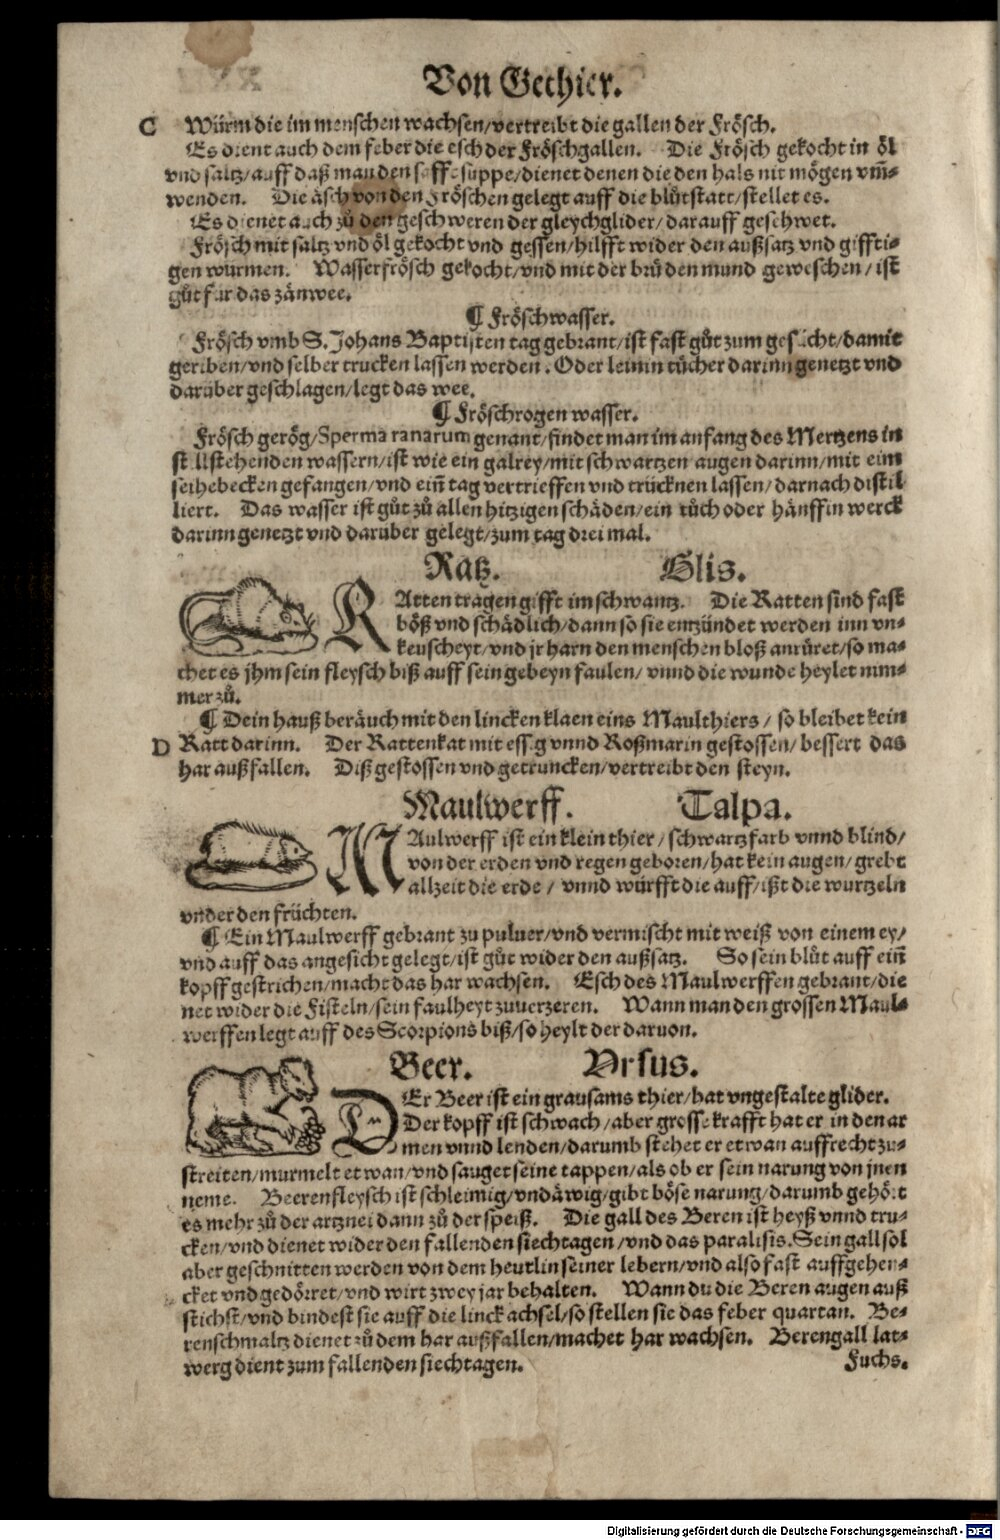 Von Gethier.
C Würm die im menschen wachsen/vertreibt die gallen der Frösch.
Es dient auch dem feber die esch der Fröschgallen. Die Frösch gekocht in öl
vnd saltz/auff daß man den saff suppe/dienet denen die den hals nit mögen vm̄-
wenden. Die äsch von den Fröschen gelegt auff die blůtstatt/stellet es.
Es dienet auch zů den geschweren der gleychglider/darauff geschwet.
Frösch mit saltz vnd öl gekocht vnd gessen/hilfft wider den außsatz vnd giffti-
gen würmen. Wasserfrösch gekocht/vnd mit der brů den mund geweschen/ist
gůt für das zänwee.
¶ Fröschwasser.
Frösch vmb S. Johans Baptisten tag gebrant/ist fast gůt zum gesicht/damit
geriben/vnd selber trucken lassen werden. Oder leinin tücher darinn genetzt vnd
darüber geschlagen/legt das wee.
¶ Fröschrogen wasser.
Frösch gerög/Sperma ranarum genant/findet man im anfang des Mertzens in
stillstehenden wassern/ist wie ein galrey/mit schwartzen augen darinn/mit eim
seihebecken gefangen/vnd ein̄ tag vertrieffen vnd trücknen lassen/darnach distil
liert. Das wasser ist gůt zů allen hitzigen schäden/ein tůch oder hänffin werck
darinn genetzt vnd darüber gelegt/zum tag drei mal.
Ratz. Glis.
RAtten tragen gifft im schwantz. Die Ratten sind fast
böß vnd schädlich/dann so sie entzündet werden inn vn-
keuscheyt/vnd jr harn den menschen bloß anrüret/so ma-
chet es jhm sein fleysch biß auff sein gebeyn faulen/vnnd die wunde heylet nim-
mer zů.
¶ Dein hauß beräuch mit den lincken klaen eins Maulthiers/so bleibet kein
D Ratt darinn. Der Rattenkat mit essig vnnd Roßmarin gestossen/bessert das
har außfallen. Diß gestossen vnd getruncken/vertreibt den steyn.
Maulwerff. Talpa.
MAulwerff ist ein klein thier/schwartzfarb vnnd blind/
von der erden vnd regen geboren/hat kein augen/grebt
allzeit die erde/vnnd würfft die auff/ißt die wurtzeln
vnder den früchten.
¶ Ein Maulwerff gebrant zu puluer/vnd vermischt mit weiß von einem ey/
vnd auff das angesicht gelegt/ist gůt wider den außsatz. So sein blůt auff ein̄
kopff gestrichen/macht das har wachsen. Esch des Maulwerffen gebrant/die
net wider die Fisteln/sein faulheyt zuuerzeren. Wann man den grossen Maul-
werffen legt auff des Scorpions biß/so heylt der daruon.
Beer. Vrsus.
DEr Beer ist ein grausams thier/hat vngestalte glider.
Der kopff ist schwach/aber grosse krafft hat er in den ar
men vnnd lenden/darumb stehet er etwan auffrecht zu-
streiten/murmelt etwan/vnd sauget seine tappen/als ob er sein narung von jnen
neme. Beerenfleysch ist schleimig/vndäwig/gibt böse narung/darumb gehört
es mehr zů der artznei dann zů der speiß. Die gall des Beren ist heyß vnnd tru-
cken/vnd dienet wider den fallenden siechtagen/vnd das paralisis. Sein gall sol
aber geschnitten werden von dem heutlin seiner lebern/vnd also fast auffgehen-
cket vnd gedörret/vnd wirt zwey jar behalten. Wann du die Beren augen auß
stichst/vnd bindest sie auff die linck achsel/so stellen sie das feber quartan. Be-
renschmaltz dienet zů dem har außfallen/machet har wachsen. Berengall lat-
werg dient zum fallenden siechtagen.
Fuchs.
Digitalisierung gefördert durch die Deutsche Forschungsgemeinschaft - DFG